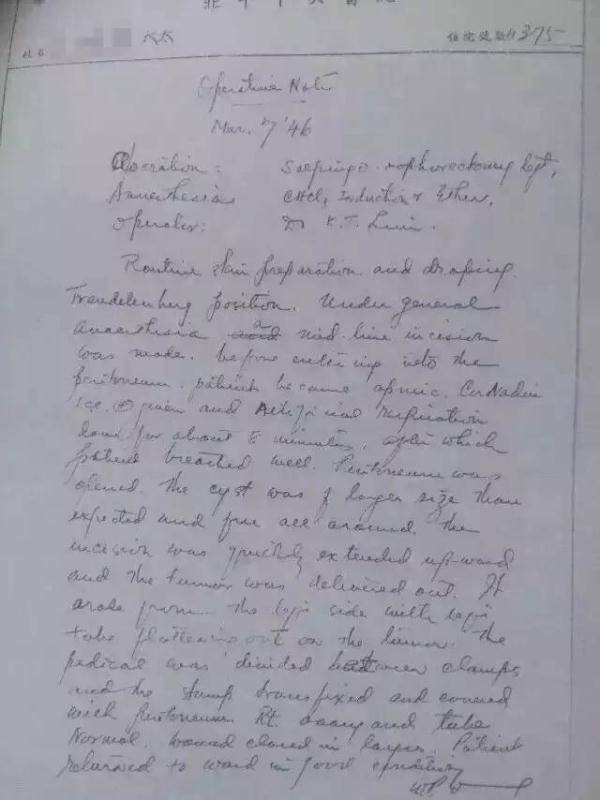 太太
住院號數 11375
Operative Note
Mar. 7 '46
Operation: Salpingo-oophorectomy left.
Anaesthesia CHCl3 Induction & Ether.
Operator: Dr K. T. Lim.
Routine skin preparation and draping.
Trendelenburg position. Under general
anaesthesia a mid-line incision
was made. before entering into the
peritoneum, patient became apneic.
1cc. given and Artificial respiration
done for about 5 minutes, after which
patient breathed well. Peritoneum was
opened. The cyst was of larger size than
expected and free all around. The
incision was quickly extended upward
and the tumor was delivered out. It
arose from the left side with left
tube flattening out on the tumor. The
pedical was divided between clamps
and the stump transfixed and covered
with peritoneum. Rt. ovary and tube
Normal. Wound closed in layers. Patient
returned to ward in good condition